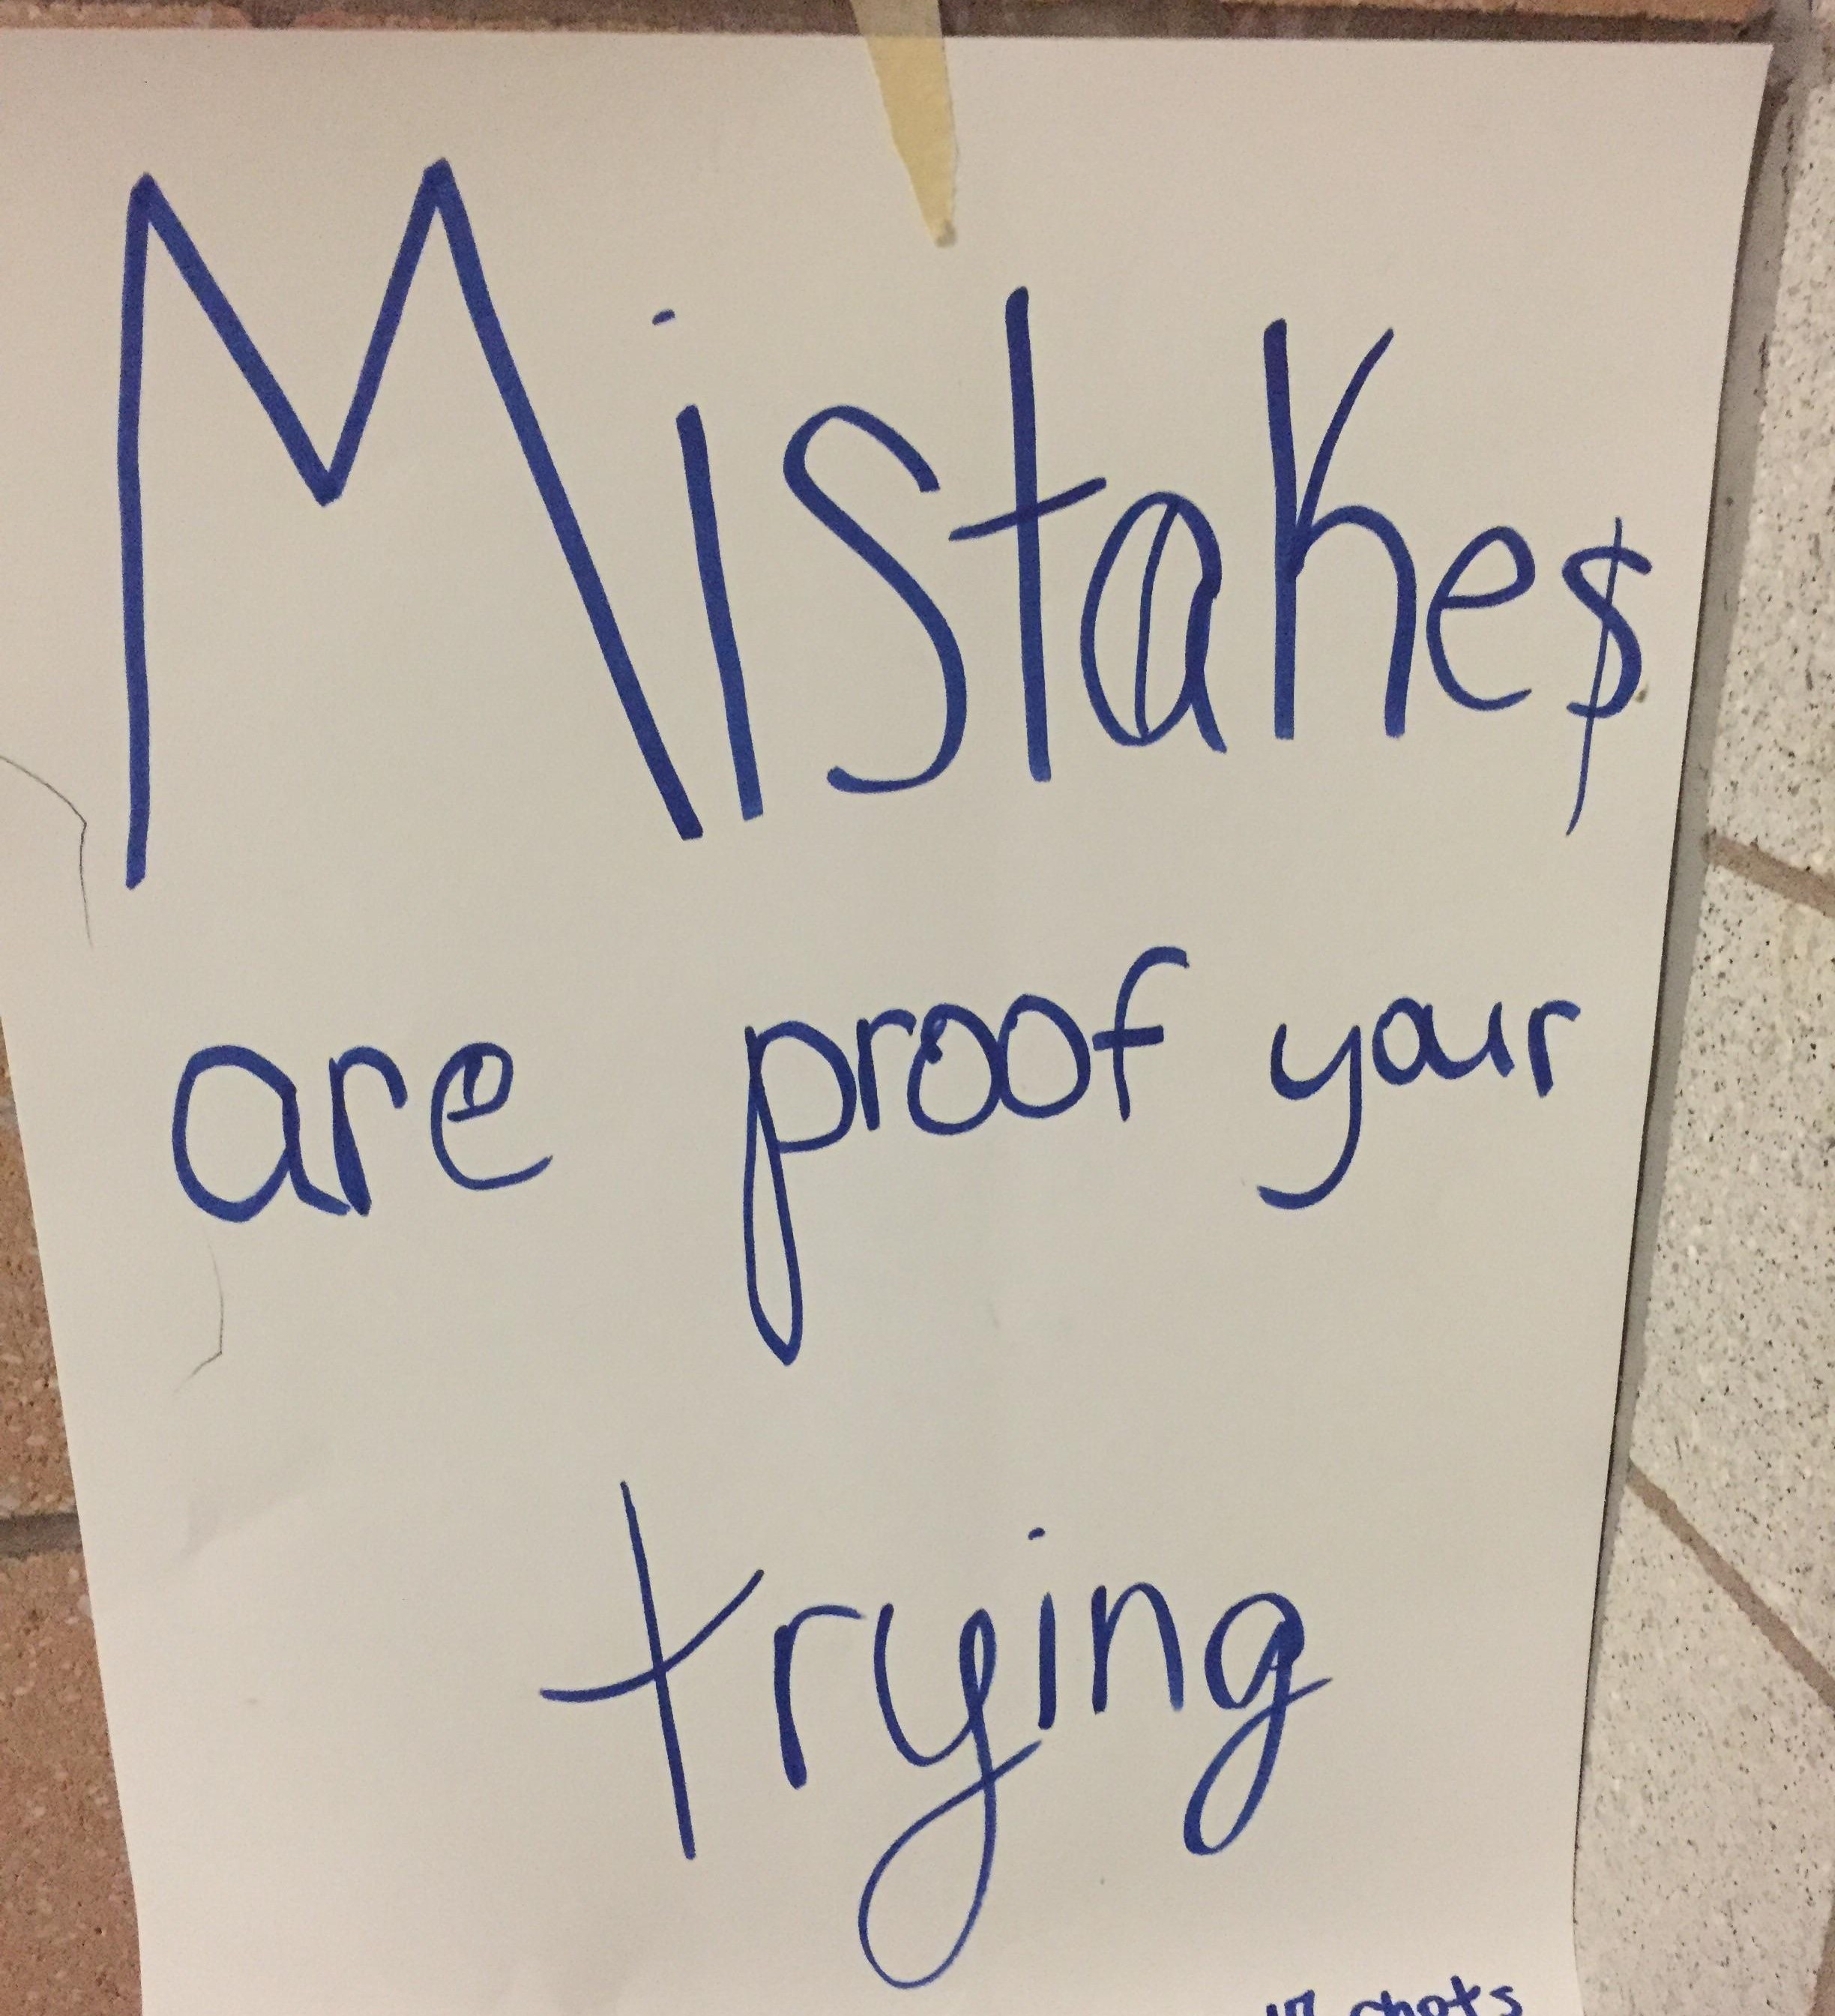 Mistakes
are proof your
trying
shots